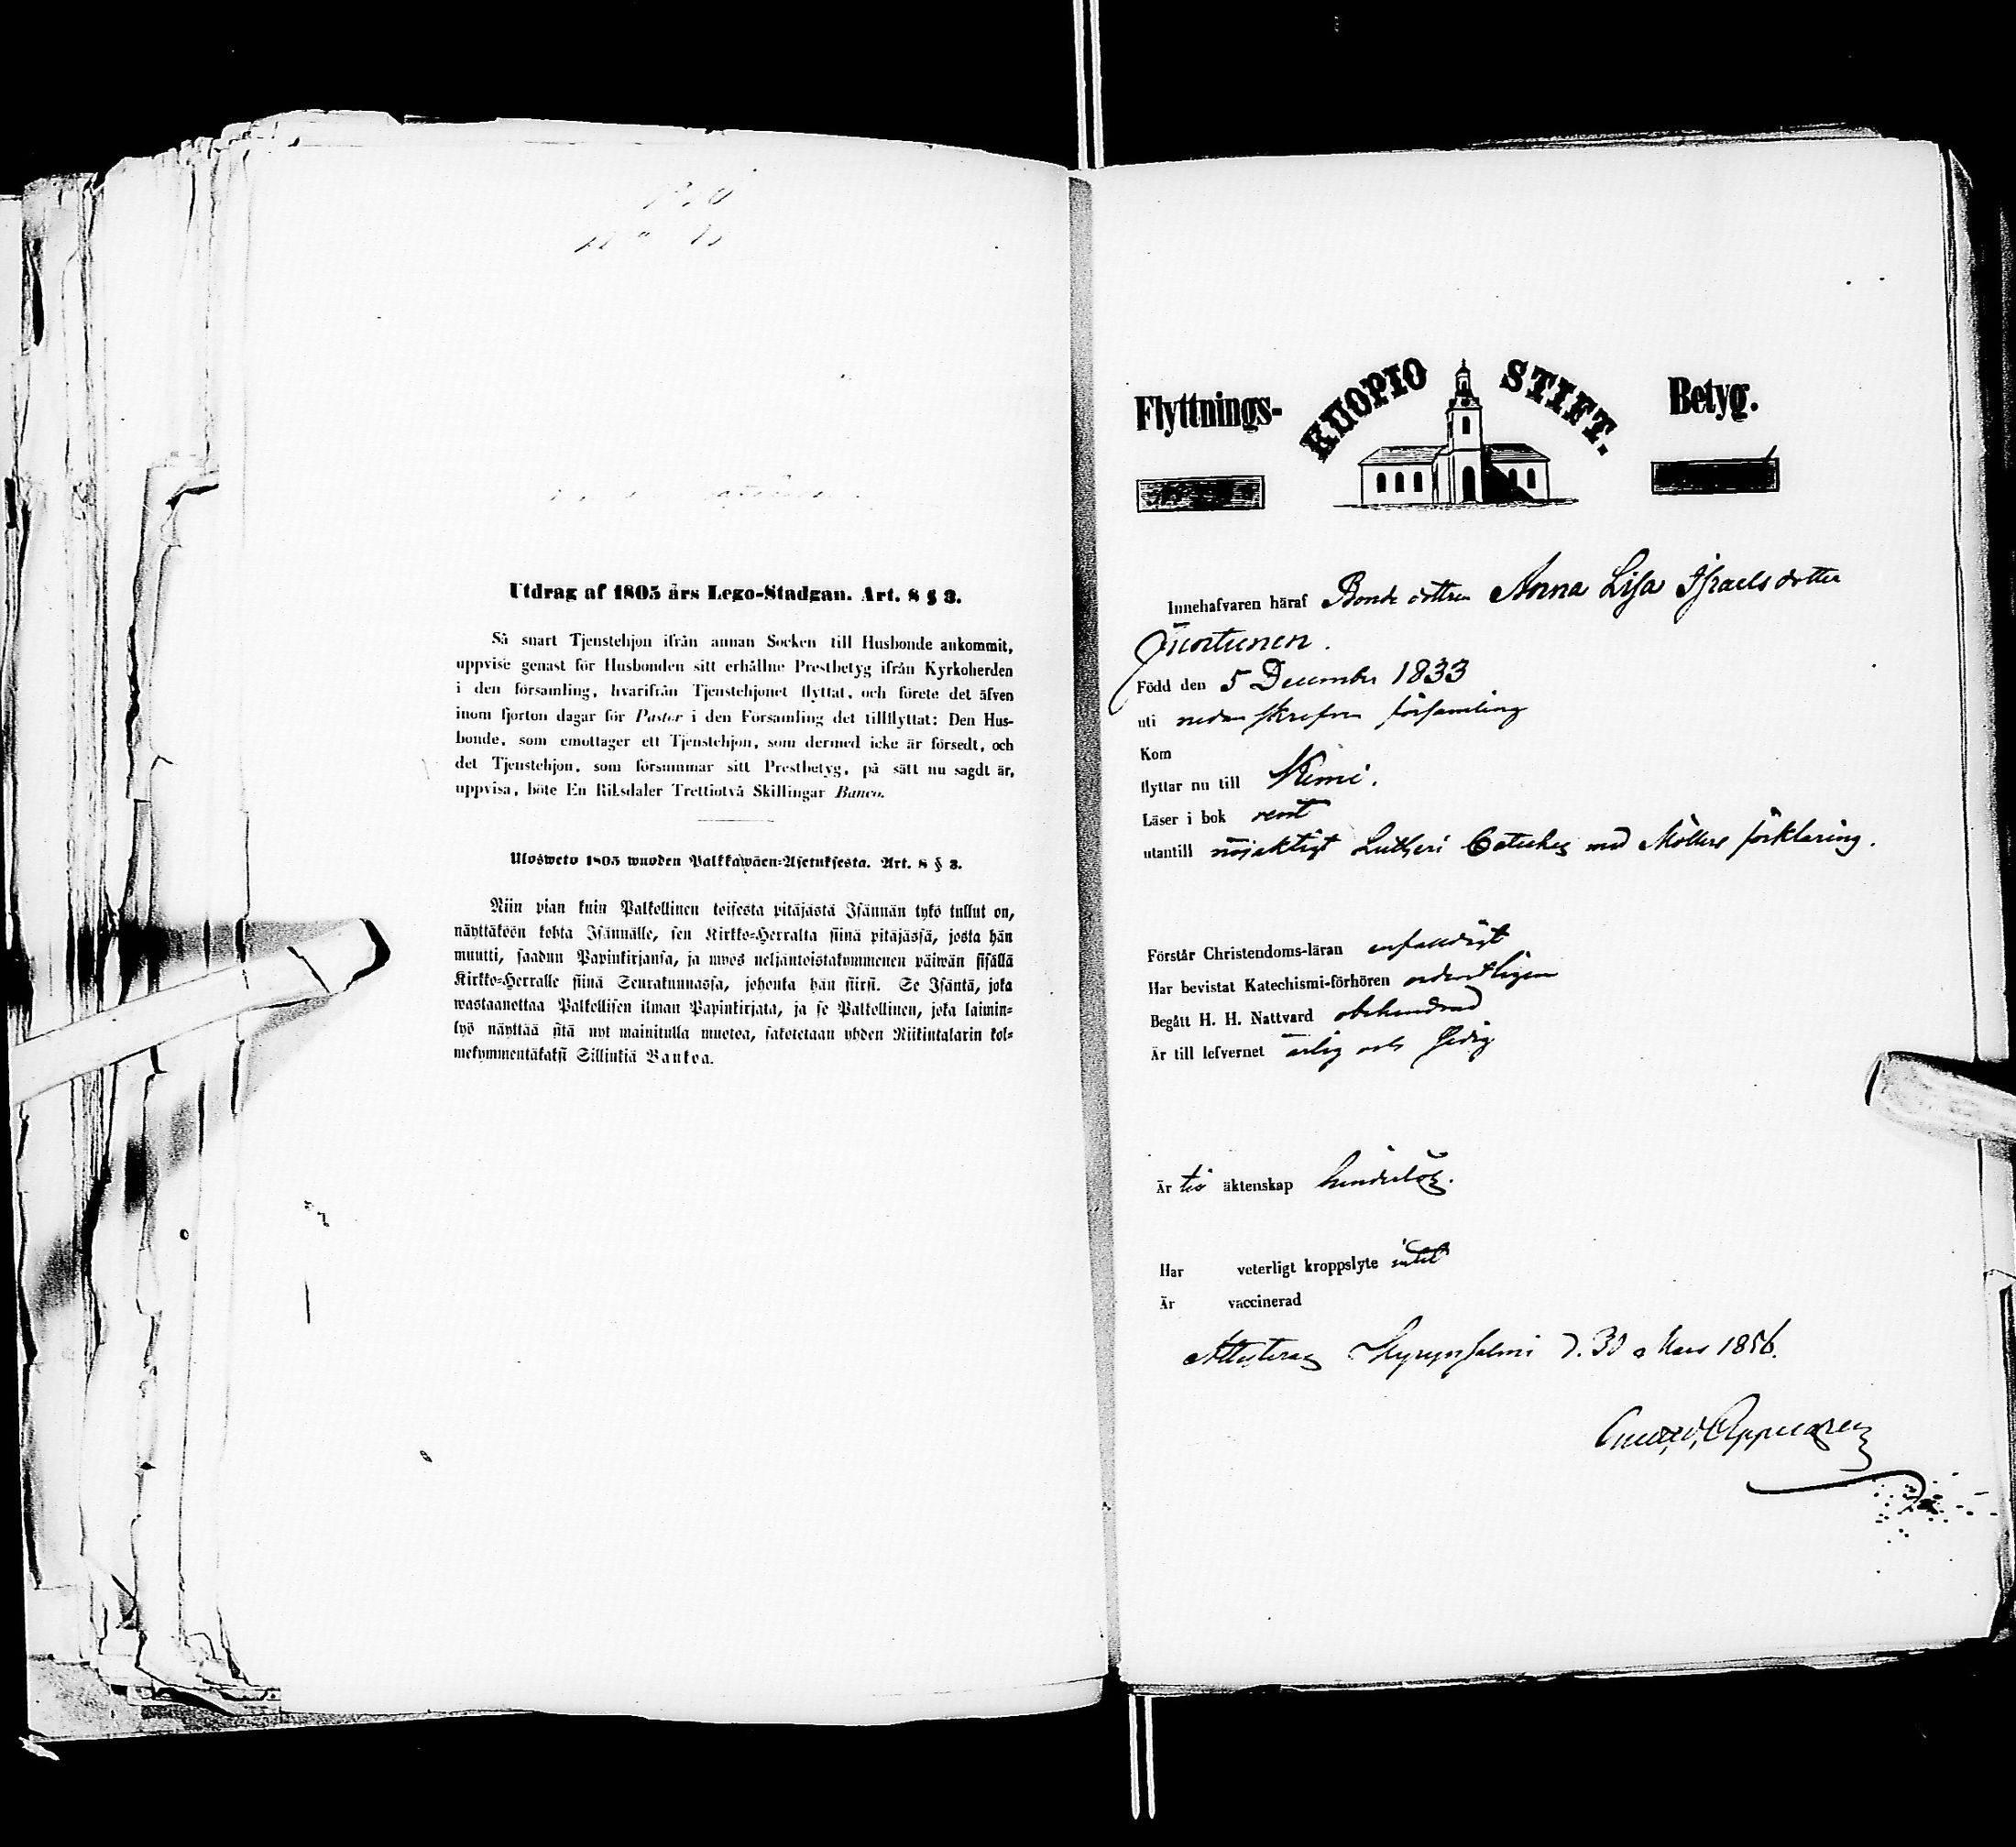 Utdrag af 1805 års Lego-Stadgan. Art. 8 § 3.
Så snart Tjenstehjon ifrån annan Socken till Husbonde ankommit,
uppvise genast för Husbonden sitt erhållne Prestbetyg ifrån Kyrkoherden
i den församling, hvarifrån Tjenstehjonet flyttat, och förete det äfven
inom fjorton dagar för Pastor i den Församling det tillflyttat: Den Hus-
bonde, som emottager ett Tjenstehjon, som dermed icke är försedt, och
det Tjenstehjon, som försummar sitt Prestbetyg, på sätt nu sagdt är,
uppvisa, böte En Riksdaler Trettiotvå Skillingar Banco.
Ulosweto 1805 wuoden Palkkawäen-Asetuksesta. Art. 8 § 3.
Niin pian kuin Palkollinen toisesta pitäjästä Isännän tykö tullut on,
näyttäköön kohta Isännälle, sen Kirkko-Herralta siinä pitäjässä, josta hän
muutti, saadun Papinkirjansa, ja myös neljäntoistakymmenen päiwän sisällä
Kirkko-Herralle siinä Seurakunnassa, johonka hän siirsi. Se Isäntä, joka
wastaanottaa Palkollisen ilman Papinkirjata, ja se Palkollinen, joka laimin-
lyö näyttää sitä nyt mainitulla muotoa, sakotetaan yhden Riikintalarin kol-
mekymmentäkaksi Sillinkiä Bankoa.
Flyttnings- KUOPIO STIFT. Betyg.
Innehafvaren häraf Bonde dottren Anna Lisa Israelsdotter
Juntunen.
Född den 5 December 1833
uti nedanskrefne församling
Kom
flyttar nu till Kemi.
Läser i bok rent
utantill nöjaktigt Lutheri Cateches med Möllers förklaring.
Förstår Christendoms-läran enfaldigt
Har bevistat Katechismi-förhören ordentligen
Begått H. H. Nattvard obehindrad
Är till lefvernet ärlig och sedig
Är till äktenskap hinderlös.
Har veterligt kroppslyte intet
Är vaccinerad
Attesteras Hyrynsalmi d. 30 Mars 1856.